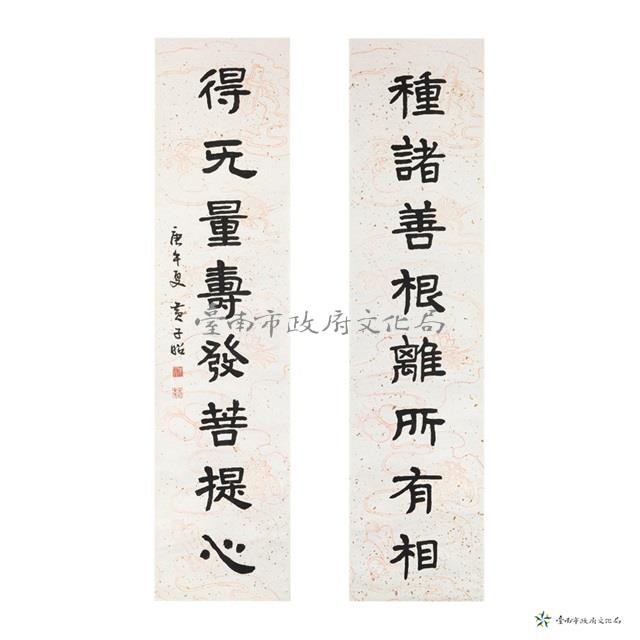 種諸善根離所有相
得无量壽發菩提心
庚午夏 黃子昭
臺南市政府文化局
臺南市政府文化局